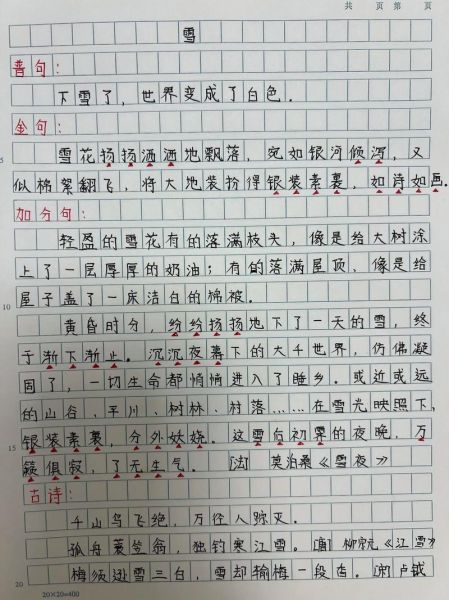 共 页 第 页
雪
普句：
下雪了，世界变成了白色.
金句：
5 雪花扬扬洒洒地飘落，宛如银河倾泻，又
似棉絮翻飞，将大地装扮得银装素裹，如诗如画.
加分句：
轻盈的雪花有的落满枝头，像是给大树涂
上了一层厚厚的奶油；有的落满屋顶、像是给
10 屋子盖了一床洁白的棉被.
黄昏时分，纷纷扬扬地下了一天的雪，终
于渐下渐止. 沉沉夜幕下的大千世界，仿佛凝
固了，一切生命都悄悄进入了睡乡. 或近或远
的山谷、平川、树林、村落……在雪光映照下，
15 银装素裹，分外妖娆. 这雪后初霁的夜晚，万
籁俱寂，了无生气. [法] 莫泊桑《雪夜》
古诗：
千山鸟飞绝，万径人踪灭.
孤舟蓑笠翁，独钓寒江雪. [唐] 柳宗元《江雪》
20 梅须逊雪三白，雪却输梅一段香. [宋] 卢钺
20×20=400